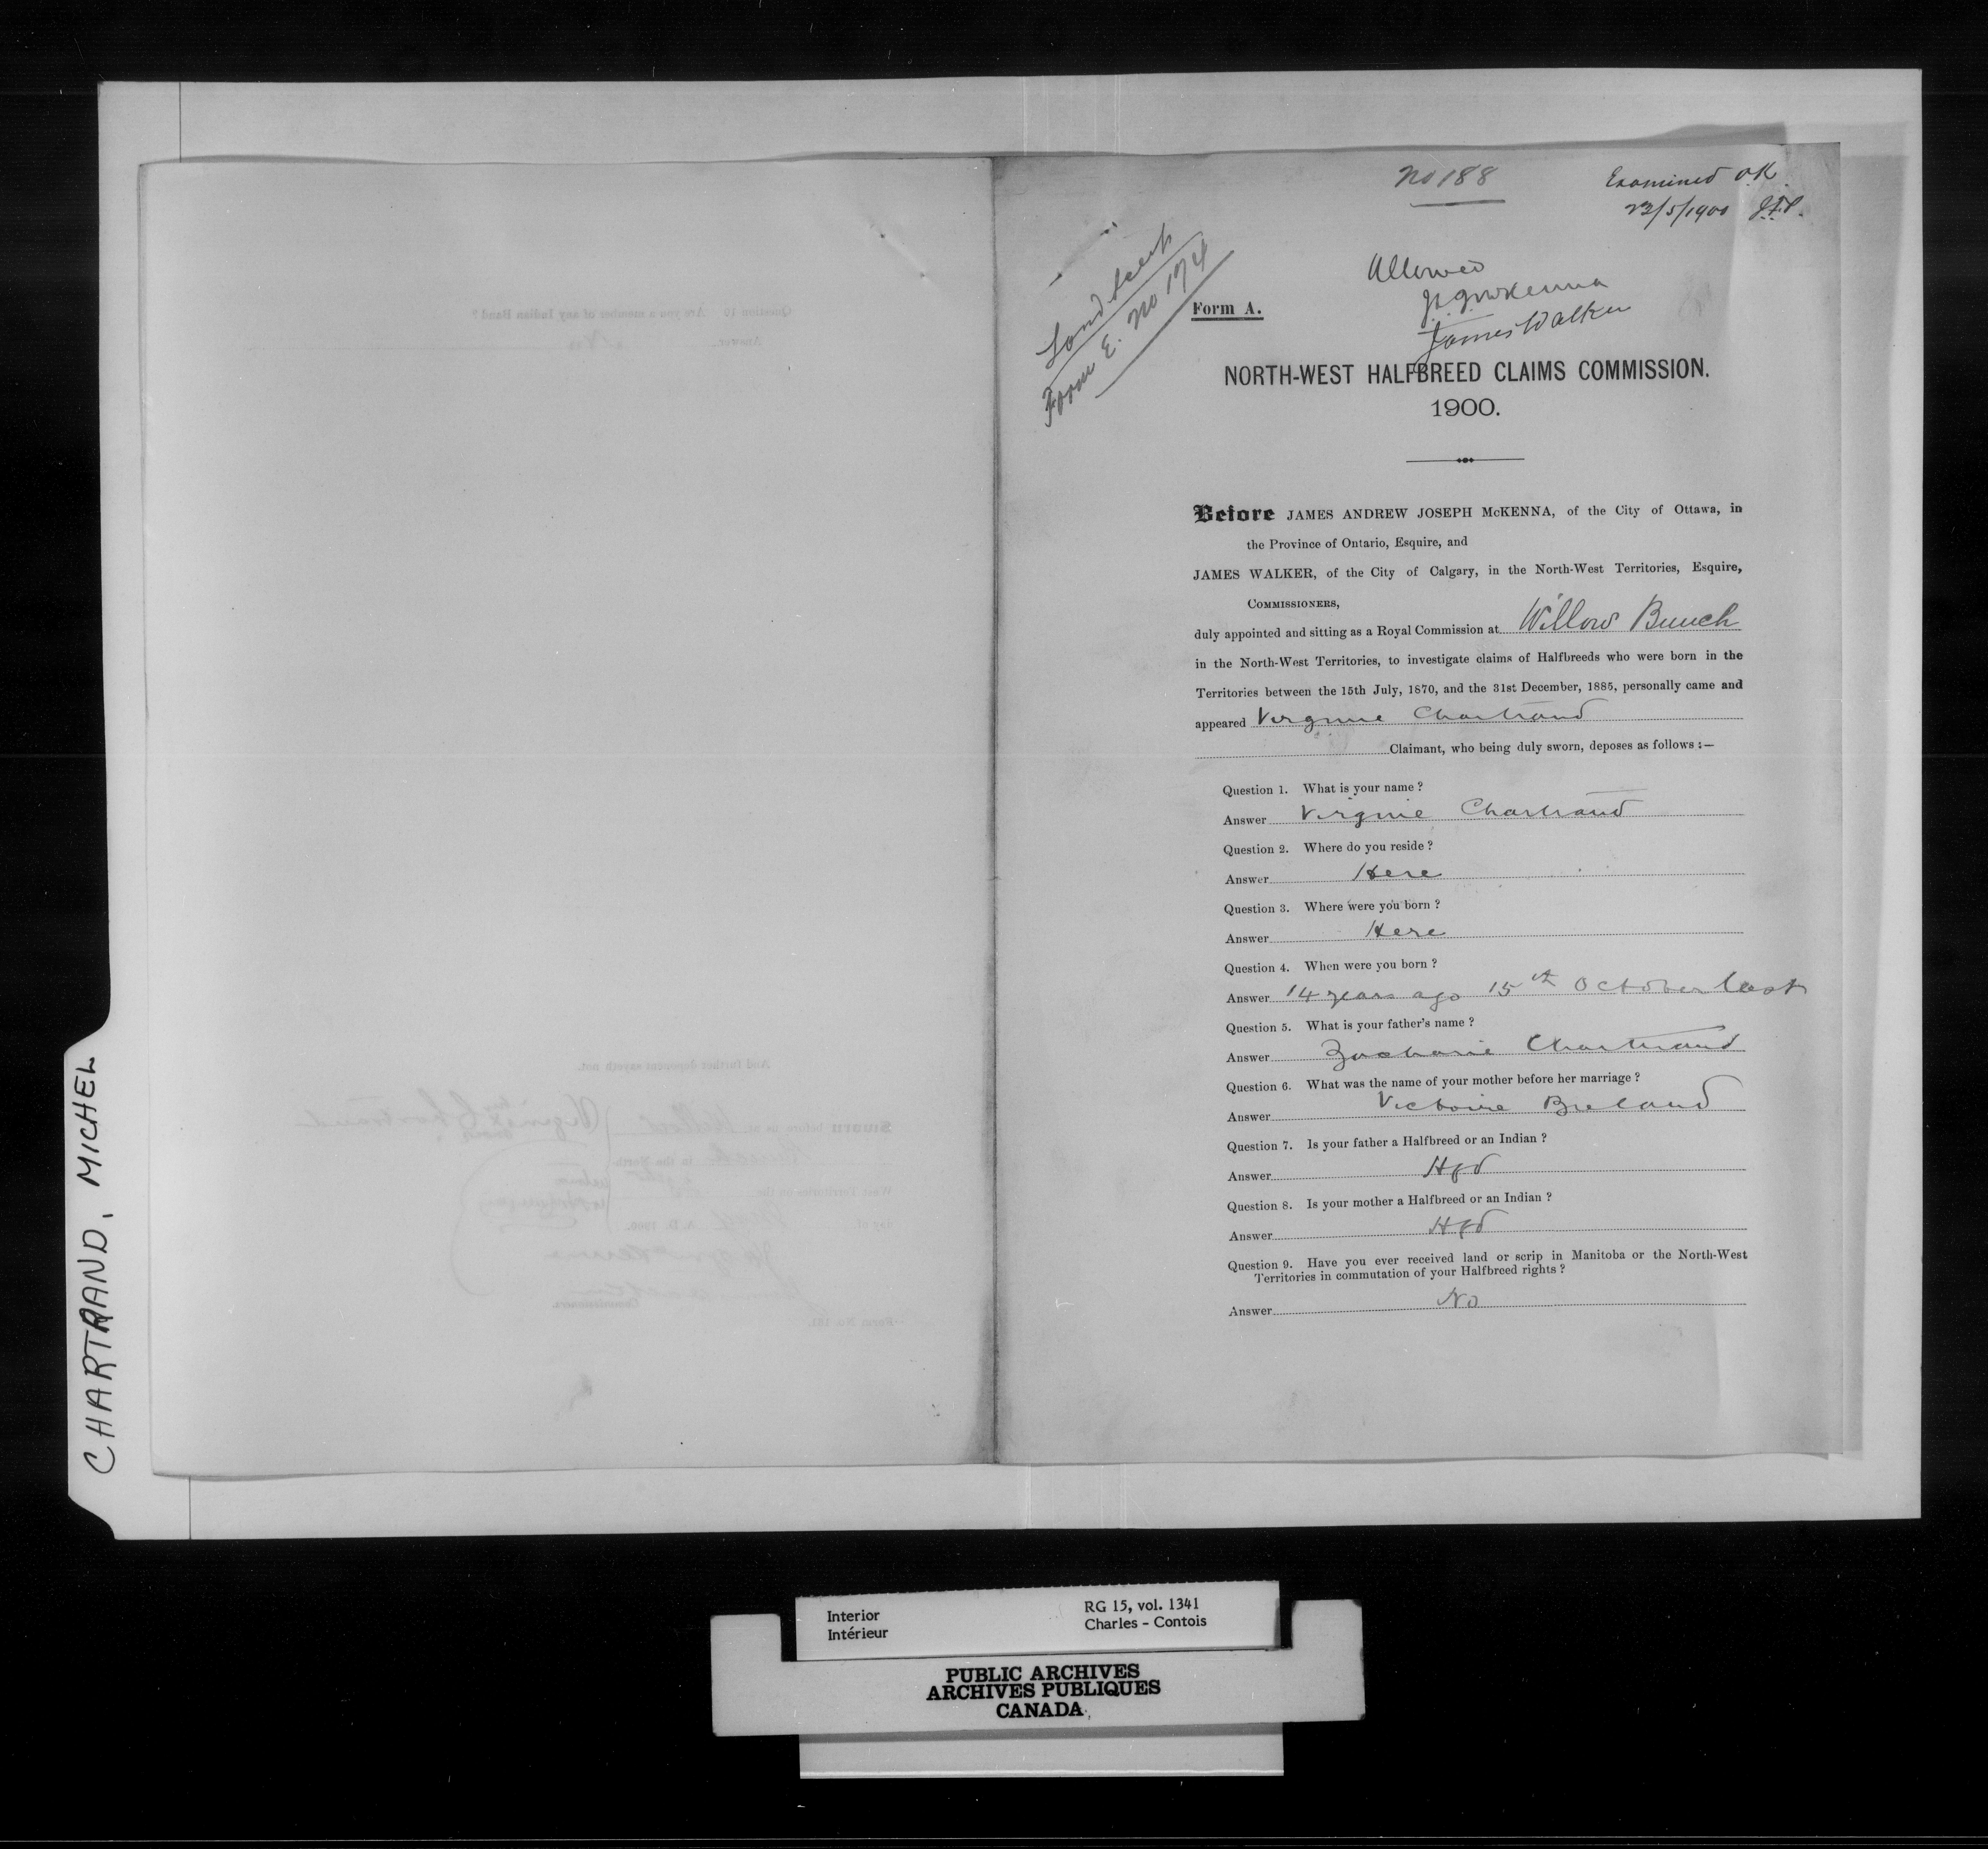 No 188
Examined O.K.
23/5/1900 J.F.P.
Land Scrip
Form E. No 174
Allowed
J.A.J. McKenna
James Walker
Form A.
NORTH-WEST HALFBREED CLAIMS COMMISSION.
1900.
Before JAMES ANDREW JOSEPH McKENNA, of the City of Ottawa, in
the Province of Ontario, Esquire, and
JAMES WALKER, of the City of Calgary, in the North-West Territories, Esquire,
COMMISSIONERS,
duly appointed and sitting as a Royal Commission at Willow Bunch
in the North-West Territories, to investigate claims of Halfbreeds who were born in the
Territories between the 15th July, 1870, and the 31st December, 1885, personally came and
appeared Virginie Chartrand
Claimant, who being duly sworn, deposes as follows :—
Question 1. What is your name ?
Answer Virginie Chartrand
Question 2. Where do you reside ?
Answer Here
Question 3. Where were you born ?
Answer Here
Question 4. When were you born ?
Answer 14 years ago 15th October last
Question 5. What is your father's name ?
Answer Zacharie Chartrand
Question 6. What was the name of your mother before her marriage ?
Answer Victoire Breland
Question 7. Is your father a Halfbreed or an Indian ?
Answer Hfd
Question 8. Is your mother a Halfbreed or an Indian ?
Answer Hfd
Question 9. Have you ever received land or scrip in Manitoba or the North-West
Territories in commutation of your Halfbreed rights ?
Answer No
Question 10 Are you a member of any Indian Band ?
Answer No
And further deponent sayeth not.
Sworn before us at Willow
Bunch in the North
West Territories on the
day of A. D. 1900.
Virginie Chartrand
Commissioners.
CHARTRAND, MICHEL
Interior
Intérieur
RG 15, vol. 1341
Charles - Contois
PUBLIC ARCHIVES
ARCHIVES PUBLIQUES
CANADA